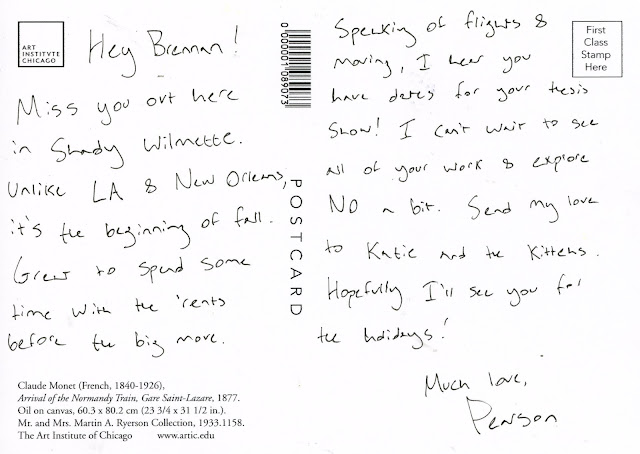 ART
INSTITVTE
CHICAGO
Hey Brennan!
Miss you out here
in Shady Wilmette.
Unlike LA & New Orleans,
it's the beginning of fall.
Great to spend some
time with the 'rents
before the big move.
Claude Monet (French, 1840-1926),
Arrival of the Normandy Train, Gare Saint-Lazare, 1877.
Oil on canvas, 60.3 x 80.2 cm (23 3/4 x 31 1/2 in.).
Mr. and Mrs. Martin A. Ryerson Collection, 1933.1158.
The Art Institute of Chicago www.artic.edu
0 000001 089073
POSTCARD
Speaking of flights &
moving, I hear you
have dates for your thesis
show! I can't wait to see
all of your work & explore
NO a bit. Send my love
to Katie and the Kittens.
Hopefully I'll see you for
the holidays!
Much love,
Penson
First
Class
Stamp
Here